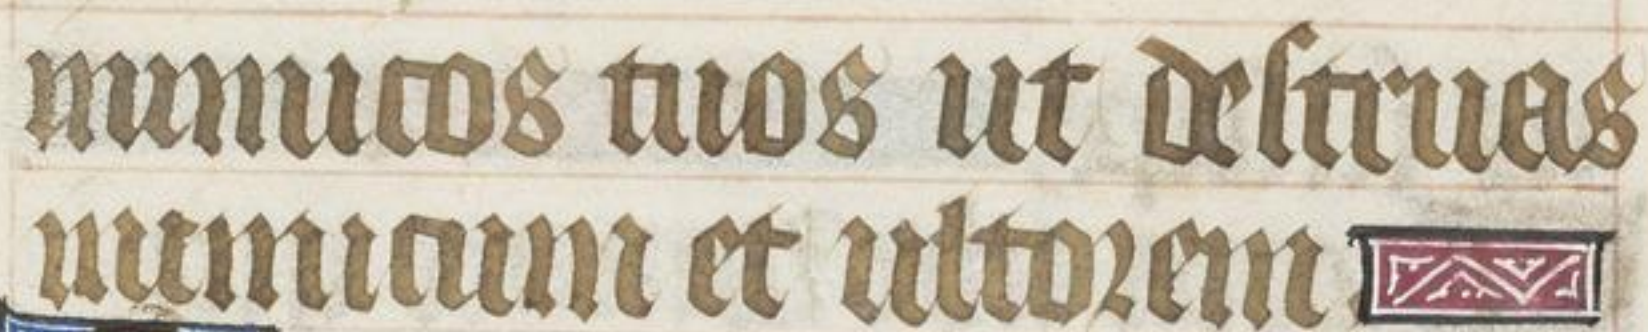 inimicos tuos ut destruas
inimicum et ultorem